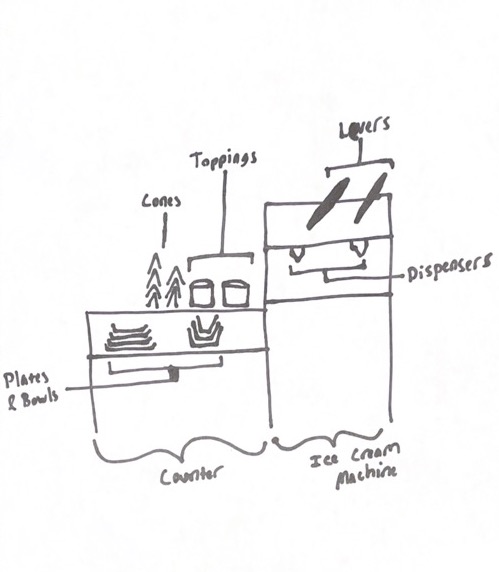 Levers
Toppings
Cones
Dispensers
Plates
& Bowls
Counter
Ice Cream
Machine